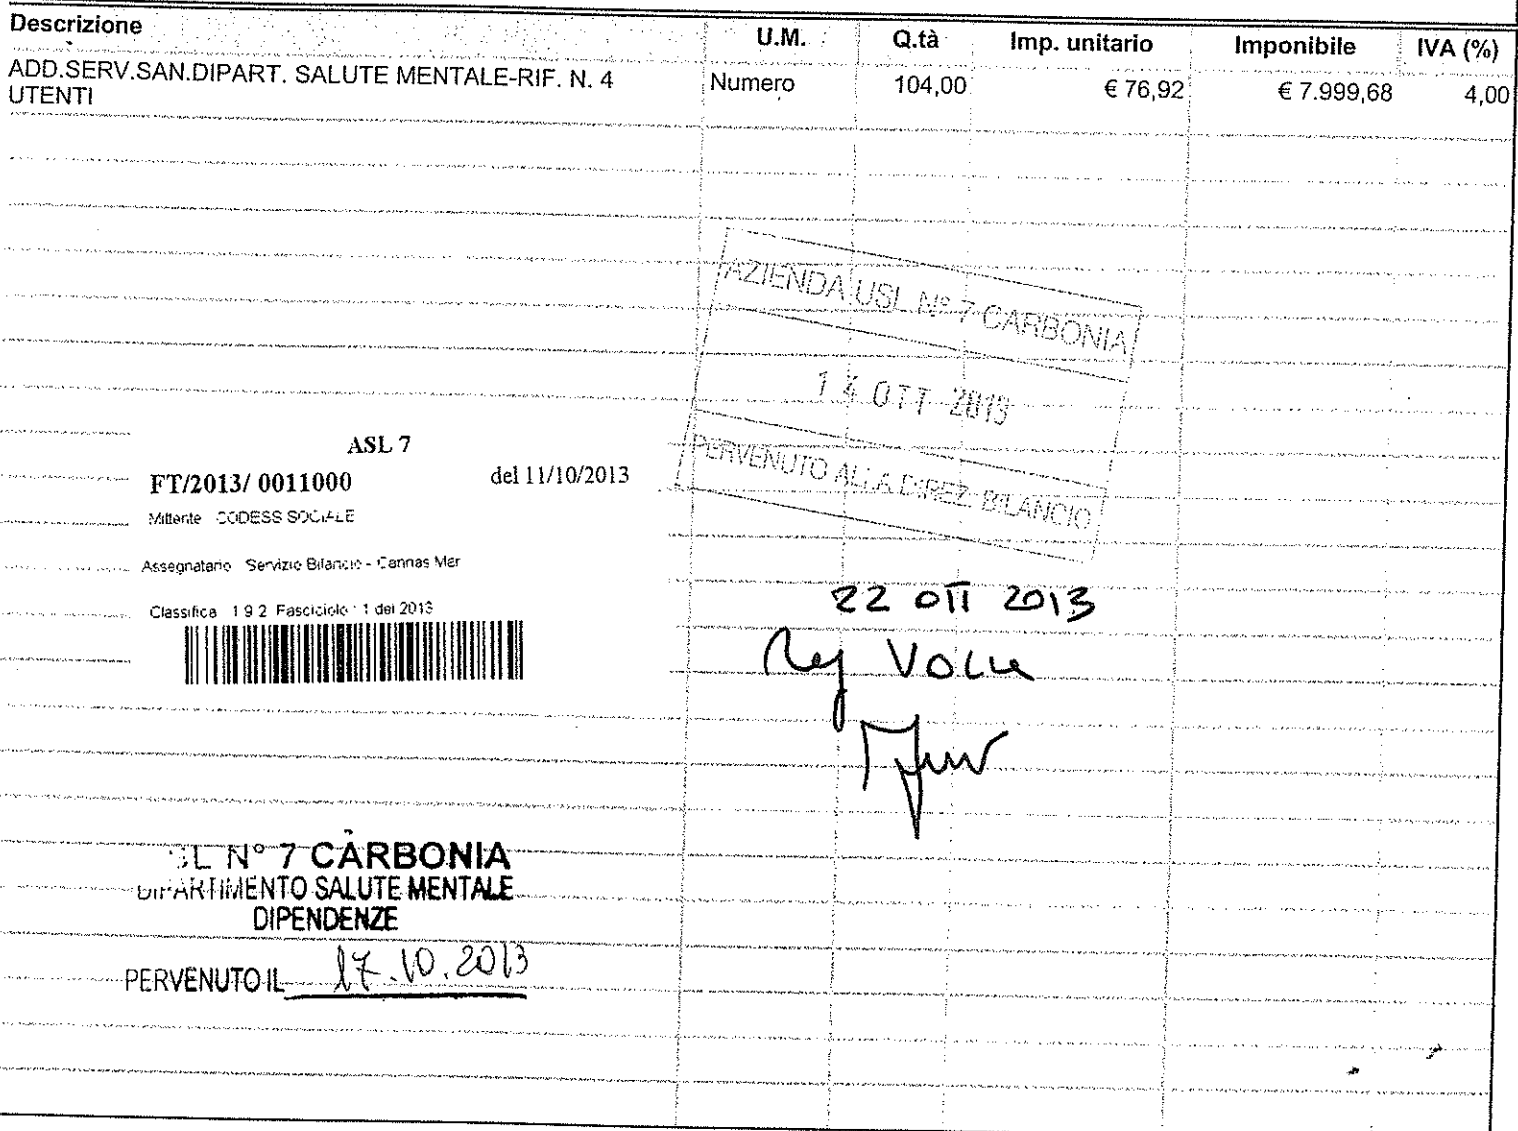 Descrizione U.M. Q.tà Imp. unitario Imponibile IVA (%)
ADD.SERV.SAN.DIPART. SALUTE MENTALE-RIF. N. 4 Numero 104,00 € 76,92 € 7.999,68 4,00
UTENTI
AZIENDA USL N° 7 CARBONIA
14 OTT 2013
PERVENUTO ALLA DIREZ. BILANCIO
ASL 7
FT/2013/ 0011000 del 11/10/2013
Mittente CODESS SOCIALE
Assegnatario Servizio Bilancio - Cannas Mar
Classifica 1 9 2 Fascicolo : 1 del 2013
22 OTT 2013
N° 7 CARBONIA
DIPARTIMENTO SALUTE MENTALE
DIPENDENZE
PERVENUTO IL 17.10.2013